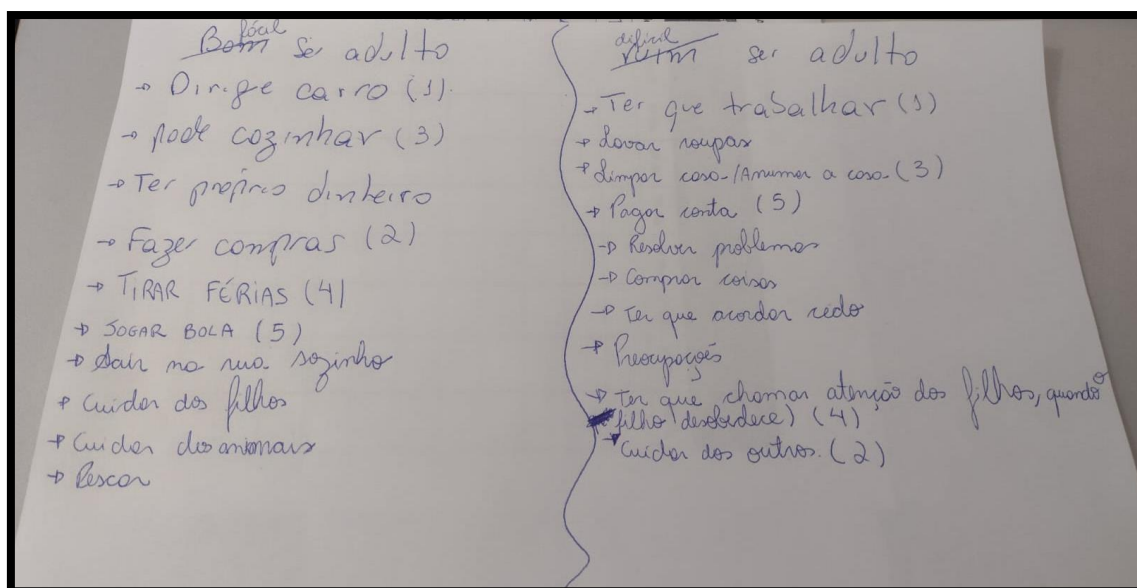 fácil
Bom ser adulto
→ Dirige carro (1).
→ pode cozinhar (3)
→ Ter próprio dinheiro
→ Fazer compras (2)
→ TIRAR FÉRIAS (4)
→ JOGAR BOLA (5)
→ Sair na rua sozinho
→ Cuidar dos filhos
→ Cuidar dos animais
→ Pescar
difícil
ruim ser adulto
→ Ter que trabalhar (1)
→ Lavar roupas
→ Limpar casa/Arrumar a casa (3)
→ Pagar conta (5)
→ Resolver problemas
→ Comprar coisas
→ Ter que acordar cedo
→ Preocupações
→ Ter que chamar atenção dos filhos, quando o
filho desobedece) (4)
→ Cuidar dos outros. (2)